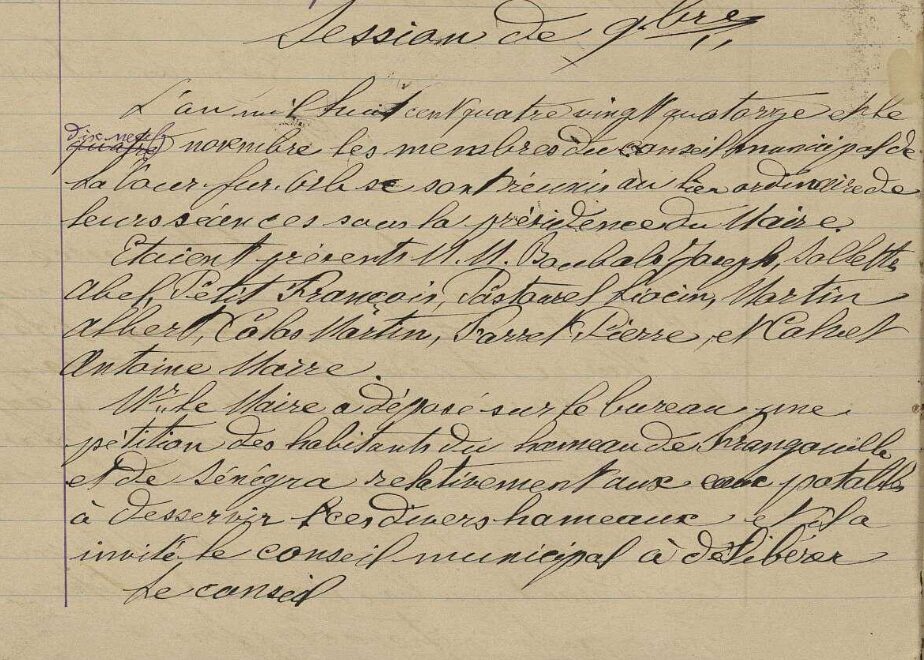 Session de 9.bre
L'an mil huit cent quatre vingt quatorze et le
dix neuf
quatre novembre les membres du conseil municipal de
La Tour-sur-Orb se sont réunis au lieu ordinaire de
leurs séances sous la présidence du Maire.
Etaient présents M.M. Joseph, Sallettes
Abel, Pétit François, Pastourel Martin
Albert, Calas Martin, Farret Pierre, et Calvet
Antoine Maire.
Mr. le Maire a déposé sur le bureau une
pétition des habitants du hameau de Frangouille
et de Sénégra relativement aux eaux potables
à desservir ces divers hameaux et il a
invité le conseil municipal à délibérer
Le conseil